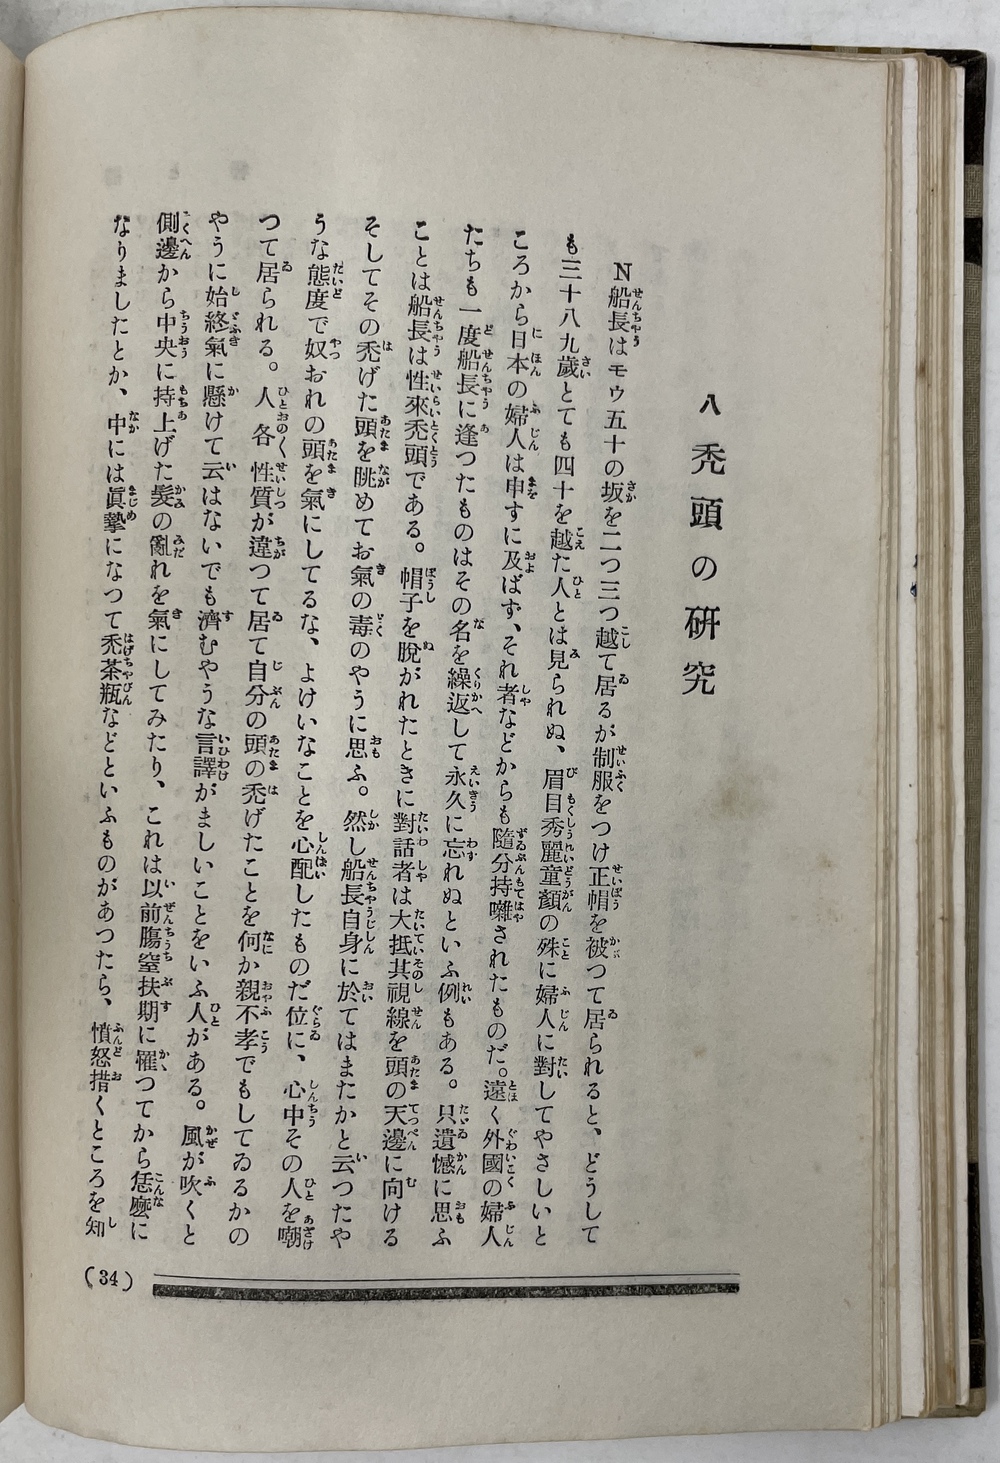 八 禿頭の研究
N船長はモウ五十の坂を二つ三つ越て居るが制服をつけ正帽を被つて居られると、どうして
も三十八九歳とても四十を越た人とは見られぬ、眉目秀麗童顏の殊に婦人に對してやさしいと
ころから日本の婦人は申すに及ばず、それ者などからも隨分持囃されたものだ。遠く外國の婦人
たちも一度船長に逢つたものはその名を繰返して永久に忘れぬといふ例もある。只遺憾に思ふ
ことは船長は性來禿頭である。帽子を脫がれたときに對話者は大抵其視線を頭の天邊に向ける
そしてその禿げた頭を眺めてお氣の毒のやうに思ふ。然し船長自身に於てはまたかと云つたや
うな態度で奴おれの頭を氣にしてるな、よけいなことを心配したものだ位に、心中その人を嘲
つて居られる。人各〱性質が違つて居て自分の頭の禿げたことを何か親不孝でもしてゐるかの
やうに始終氣に懸けて云はないでも濟むやうな言譯がましいことをいふ人がある。風が吹くと
側邊から中央に持上げた髮の亂れを氣にしてみたり、これは以前膓窒扶期に罹つてから恁麽に
なりましたとか、中には眞摯になつて禿茶瓶などといふものがあつたら、憤怒措くところを知
(34)